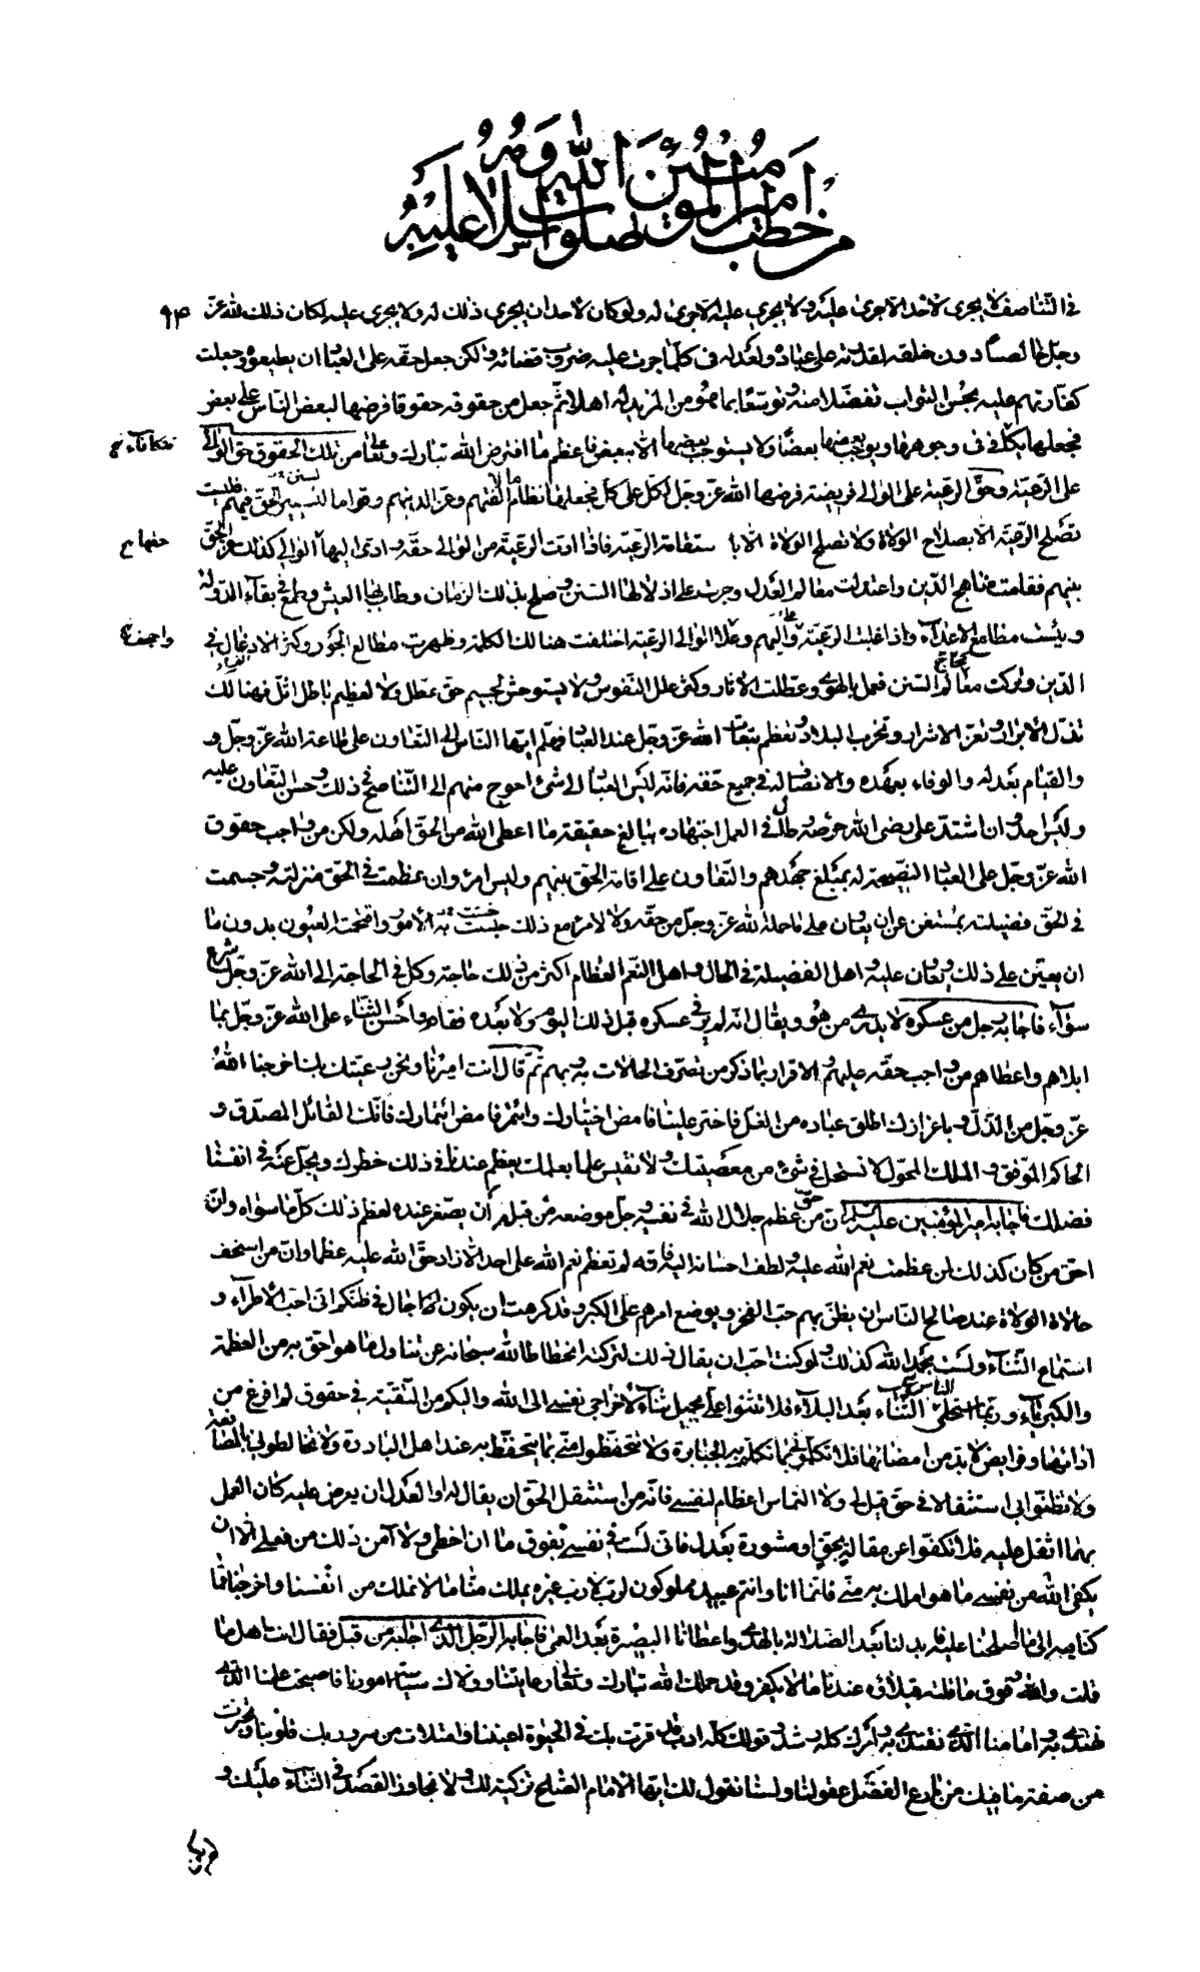 ومن خطب أمير المؤمنين صلوات الله وسلامه عليه
في التناصف لا يجري لأحد إلا جرى عليه ولا يجري عليه إلا جرى له ولو كان لأحد ان يجري ذلك له ولا يجري عليه لكان ذلك لله عزّ
٩٣
وجل خالصا دون خلقه لقدرته على عباده ولعدله في كلما جرت عليه ضروب قضائه ولكن جعل حقه على العباد ان يطيعوه وجعلت
كفارتهم عليه بحسن الثواب تفضلا منه وتوسعا بما هو من المزيد له اهلا ثم جعل من حقوقه حقوقا فرضها لبعض الناس على بعض
فجعلها تتكافى في وجوهها ويوجب بعضها بعضا ولا يستوجب بعضها الا ببعض فاعظم ما افترض الله تبارك وتعالى من تلك الحقوق حق الوالى
تتكافأ خ
على الرعية وحق الرعية على الوالى فريضة فرضها الله عز وجل لكل على كل فجعلها نظام الفتهم وعزا لدينهم وقواما لسير الحق فيهم فليست
لسنن
تصلح الرعية الا بصلاح الولاة ولا تصلح الولاة الا باستقامة الرعية فاذا ادت الرعية من الوالى حقه وادى اليها الوالى كذلك عز الحق
حقها خ
بينهم فقامت مناهج الدين واعتدلت معالم العدل وجرت على اذلالها السنن وصلح بذلك الزمان وطاب بها العيش وطمع في بقاء الدولة
ويئست مطامع الاعداء واذا غلبت الرعية واليهم وعلا الوالى الرعية اختلفت هنالك الكلمة وظهرت مطالع الجور وكثر الادغال في
الدين وتركت معالم السنن فعمل بالهوى وعطلت الاثار وكثر علل النفوس ولا يستوحش لجسيم حق عطل ولا لعظيم باطل اثل فهنالك
تذل الابرار وتعز الاشرار وتخرب البلاد وتعظم تبعات الله عز وجل عند العباد فهلم ايها الناس الى التعاون على طاعة الله عز وجل و
والقيام بعدله والوفاء بعهده والانصاف له في جميع حقه فانه ليس العباد الى شئ احوج منهم الى التناصح في ذلك وحسن التعاون عليه
وليس احد وان اشتد على رضى الله حرصه وطال في العمل اجتهاده ببالغ حقيقة ما اعطى الله من الحق اهله ولكن من واجب حقوق
الله عز وجل على العباد النصيحة له بمبلغ جهدهم والتعاون على اقامة الحق بينهم وليس امرؤ وان عظمت في الحق منزلته وجسمت
في الحق فضيلته بمستغن عن ان يعان على ما حمله الله عز وجل من حقه ولا لامرئ مع ذلك خسئت به الأمور واقتحمته العيون بدون ما
ان يعين على ذلك ويعان عليه واهل الفضيلة في الحال واهل النعم العظام اكثر في ذلك حاجة وكل في الحاجة الى الله عز وجل شرع
سواء فاجابه رجل من عسكره لا يدرى من هو ويقال انه لم ير في عسكره قبل ذلك اليوم ولا بعده فقام واحسن الثناء على الله عز وجل بما
ابلاهم واعطاهم من واجب حقه عليهم والاقرار بما ذكر من تصرف الحالات به وبهم ثم قال انت اميرنا ونحن رعيتك بك اخرجنا الله
عز وجل من الذل وباعزازك اطلق عباده من الغل فاختر علينا فامض اختيارك وائتمر فامض ائتمارك فانك القائل المصدق و
الحاكم الموفق والملك المخول لا نستحل في شئ من معصيتك ولا نقيس علما بعلمك يعظم عندنا في ذلك خطرك ويجل عنه في انفسنا
فضلك فاجابه امير المؤمنين عليه السلام ان من حق من عظم جلال الله في نفسه وجل موضعه من قبله أن يصغر عنده لعظم ذلك كل ما سواه وان
احق من كان كذلك لمن عظمت نعم الله عليه ولطف احسانه اليه فانه لم تعظم نعم الله على احد الا زاد حق الله عليه عظما وان من اسخف
حالات الولاة عند صالح الناس ان يظن بهم حب الفخر ويوضع امرهم على الكبر وقد كرهت ان يكون جال في ظنكم انى احب الأطراء و
استماع الثناء ولست بحمد الله كذلك ولو كنت احب ان يقال ذلك لتركته انحطاطا لله سبحانه عن تناول ما هو احق به من العظمة
والكبرياء وربما استحلى الناس الثناء بعد البلاء فلا تثنوا علي بجميل ثناء لأخراجى نفسى الى الله واليكم من التقية في حقوق لم افرغ من
ادائها وفرايض لا بد من امضائها فلا تكلمونى بما تكلم به الجبابرة ولا تتحفظوا منى بما يتحفظ به عند اهل البادرة ولا تخالطونى بالمصانعة
ولا تظنوا بى استثقلا في حق قيل لى ولا التماس اعظام لنفسى فانه من استثقل الحق ان يقال له او العدل ان يعرض عليه كان العمل
بهما اثقل عليه فلا تكفوا عن مقالة بحق او مشورة بعدل فانى لست في نفسى بفوق ما ان اخطى ولا آمن ذلك من فعلى الا ان
يكفى الله من نفسى ما هو املك به منى فانما انا وانتم عبيد مملوكون لرب لا رب غيره يملك منا ما لا نملك من انفسنا واخرجنا مما
كنا فيه الى ما صلحنا عليه فابدلنا بعد الضلالة بالهدى واعطانا البصيرة بعد العمى فاجابه الرجل الذى اجابه من قبل فقال انت اهل ما
قلت والله فوق ما قلته فبلاؤه عندنا ما لا يكفر وقد حملك الله تبارك وتعالى رعايتنا وولاك سياسة امورنا فاصبحت علمنا الذى
نهتدى به وامامنا الذى نقتدى به وامرك كله رشد وقولك كله ادب قد قرت بك في الحيوة اعيننا وامتلات من سرور بك قلوبنا وتحيرت
من صفة ما فيك من بارع الفضل عقولنا ولسنا نقول لك ايها الامام الصالح تزكية لك ولا نجاوز القصد في الثناء عليك و